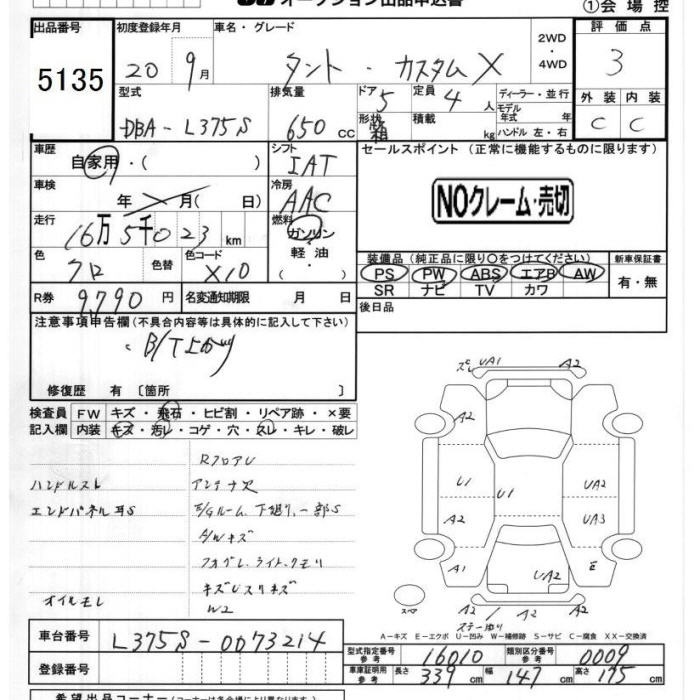 オークション出品申込書 ①会場控
出品番号 初度登録年月 車名・グレード 評価点
5135 20年 9月 タント・カスタムX 2WD・4WD 3
型式 排気量 ドア 定員 ディーラー・並行 外装 内装
DBA-L375S 650cc 5 4人 モデル年式 年 C C
形状 積載 kg ハンドル 左・右
車歴 シフト セールスポイント(正常に機能するものに限ります)
自家用・( ) IAT
車検 冷房
年 月( 日) AAC NOクレーム・売切
走行 燃料
16万5千023km ガソリン・軽油・( )
色 色替 色コード 装備品(純正品に限り○をつけてください) 新車保証書
クロ X10 PS PW ABS エアB AW 有・無
SR ナビ TV カワ
R券 9,790円 名変通知期限 月 日 後日品
注意事項申告欄(不具合内容等は具体的に記入して下さい)
修復歴 有 〔箇所 〕
検査員記入欄 FW キズ・飛石・ヒビ割・リペア跡・×要
内装 キズ・汚レ・コゲ・穴・スレ・キレ・破レ
RフロアU
ハンドルスレ アンテナ欠
エンドパネル耳S E/Gルーム、下廻り、一部S
A/Wキズ
フォグL.ライトクモリ
キズUスリキズ
オイルモレ W2
UA1 A2
A2
U1 U1 UA2
A2 UA3
A1 E
UA2
スペア A2 UA2 A2
A-キズ E-エクボ U-凹み W-補修跡 S-サビ C-腐食 XX-交換済
車台番号 L375S-0073214
型式指定番号 参考 16010 類別区分番号 参考 0009
登録番号 車庫証明用 参考 長さ 339cm 幅 147cm 高さ 175cm
希望出品コーナー(コーナーは各会場により異なります)